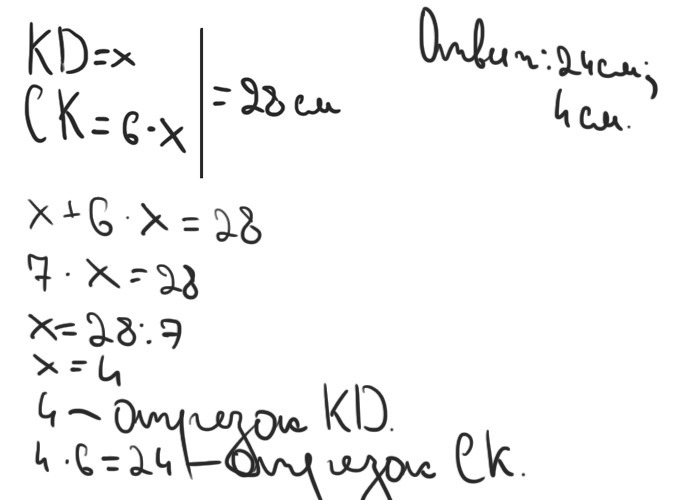 KD=x
CK=6·x
=28 см
x+6·x=28
7·x=28
x=28:7
x=4
4 – отрезок KD.
4·6=24 – отрезок CK.
Ответ: 24см;
4см.